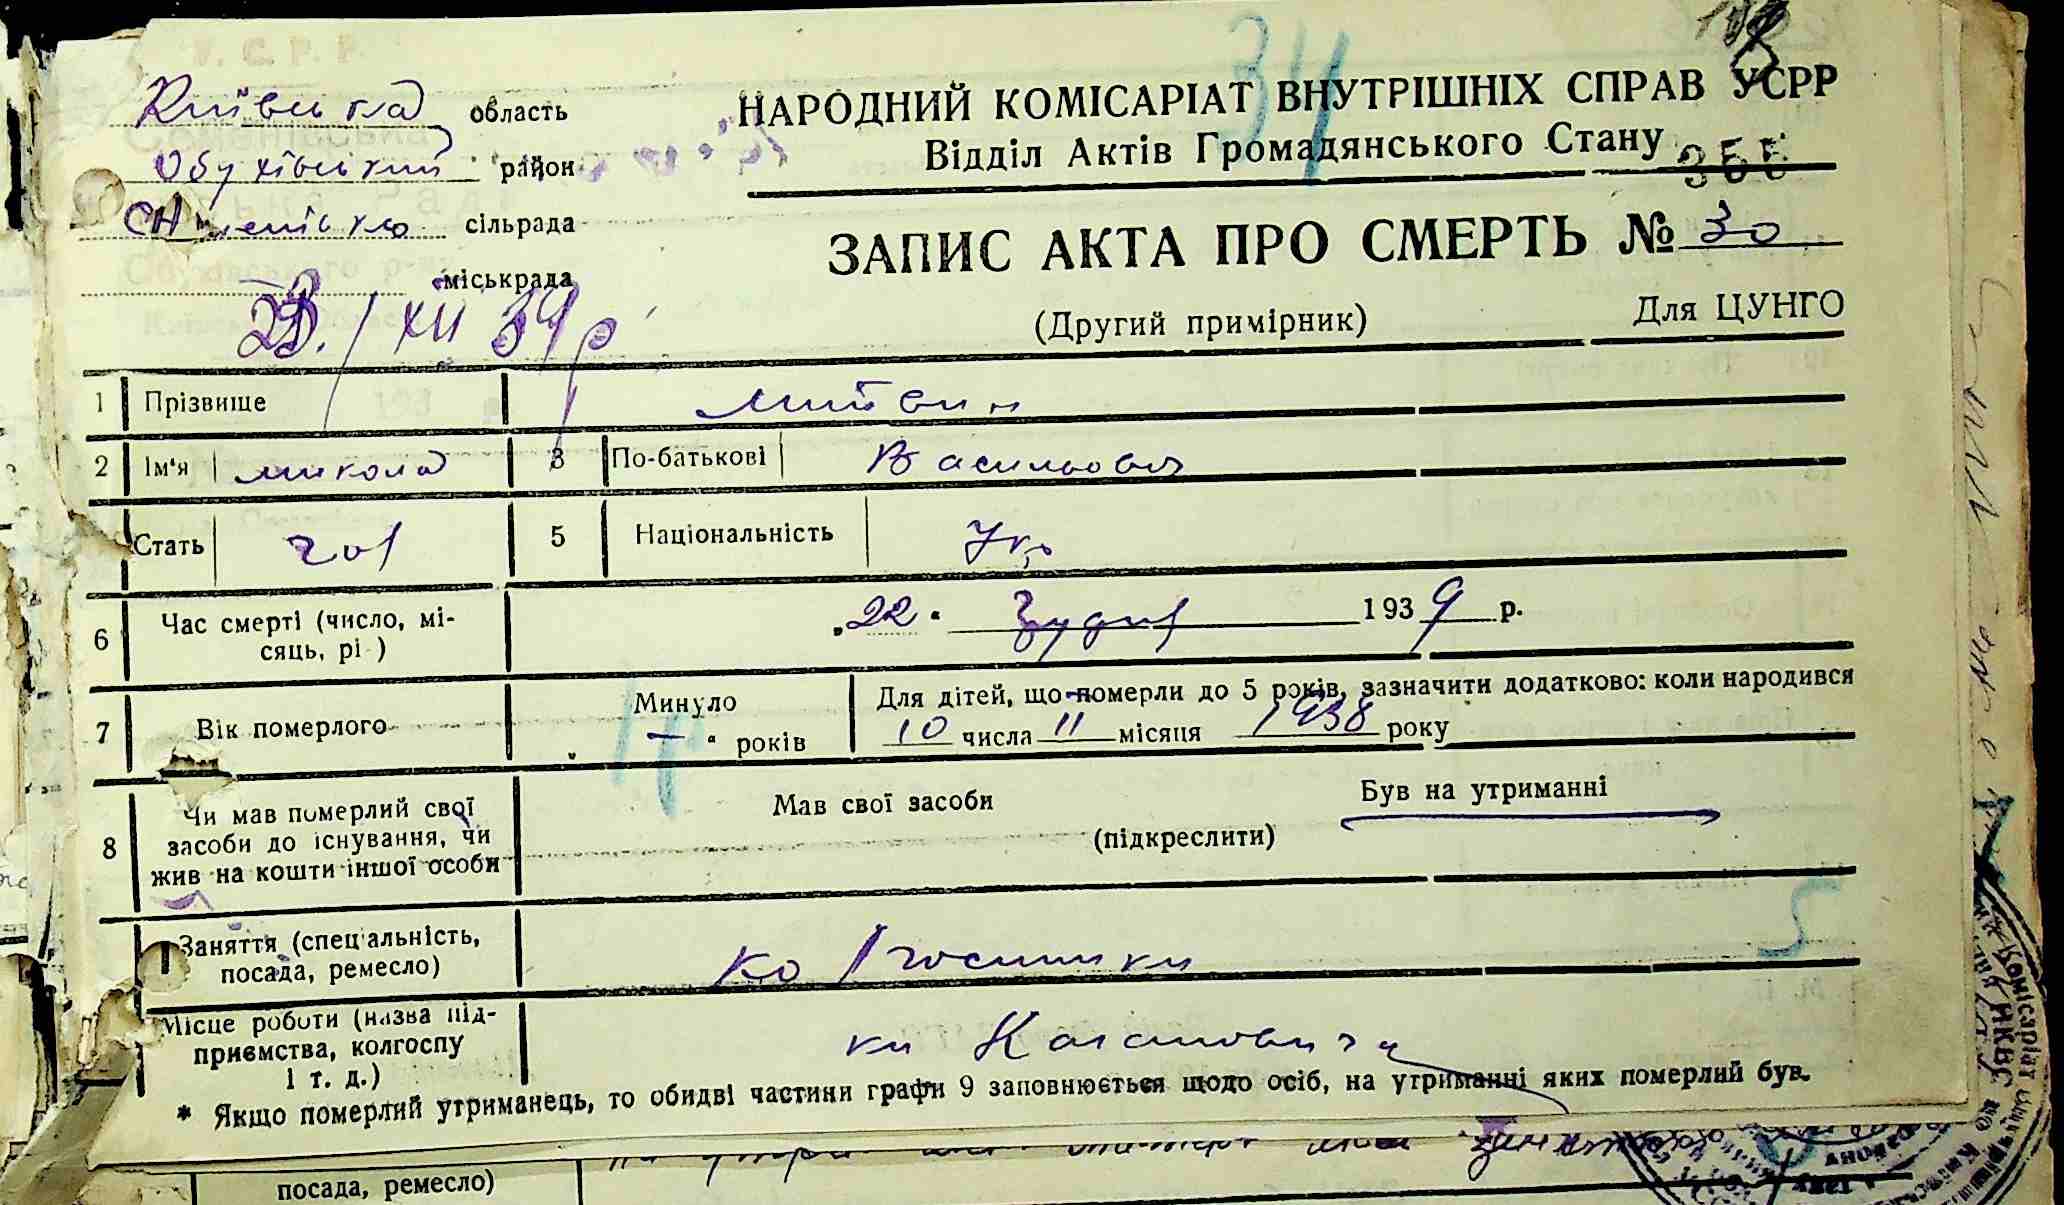 Київська область
Обухівський район
сільрада
міськрада
23/XII 39 р
НАРОДНИЙ КОМІСАРІАТ ВНУТРІШНІХ СПРАВ УСРР
Відділ Актів Громадянського Стану
34
ЗАПИС АКТА ПРО СМЕРТЬ № 30
(Другий примірник)
Для ЦУНГО
1 Прізвище Литвин
2 Ім'я микола 3 По-батькові Васильович
Стать чол 5 Національність Укр
6 Час смерті (число, мі-
сяць, рі ) „22“ Грудня 1939 р.
7 Вік померлого Минуло „ — “ років
Для дітей, що померли до 5 років, зазначити додатково: коли народився
10 числа 11 місяця 1938 року
8 Чи мав померлий свої
засоби до існування, чи
жив на кошти іншої особи
Мав свої засоби Був на утриманні
(підкреслити)
Заняття (спеціальність,
посада, ремесло) колгоспники
5
Місце роботи (назва під-
приємства, колгоспу
і т. д.) Кагановича
* Якщо померлий утриманець, то обидві частини графи 9 заповнюється щодо осіб, на утриманні яких померлий був.
посада, ремесло)